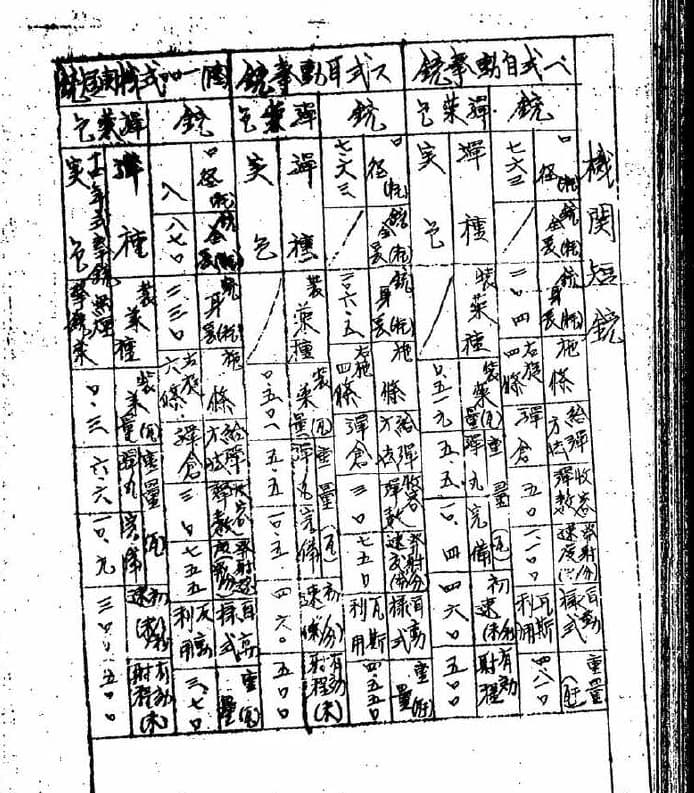 機関短銃
ベ式自動拳銃
銃
口径(粍) 銃全長(粍) 銃身長(粍) 施條 給弾方法 收容弾数 発射速度(分) 自動様式 重量(瓩)
七.六三 / 二〇四 右旋四條 弾倉 五〇 瓦斯利用
弾薬包
弾種 装薬種 装薬量(瓦) 重量(瓦) 弾丸 完備 初速(米/秒) 有効射程
実包 / 〇.五一九 五.五 一〇.四 四六〇 五〇〇
ス式自動拳銃
銃
口径(粍) 銃全長(粍) 銃身長(粍) 施條 給弾方法 收容弾数 発射速度(分) 自動様式 重量(瓩)
七.六三 / 右旋四條 弾倉 三〇 七五〇 瓦斯利用 四.五五〇
弾薬包
弾種 装薬種 装薬量(瓦) 重量(瓦) 弾丸 完備 初速(米/秒) 有効射程(米)
実包 / 〇.五〇一 五.五 一〇.五 四六〇 五〇〇
一〇〇式機関短銃
銃
口径(粍) 銃全長(粍) 銃身長(粍) 施條 給弾方法 收容弾数 発射速度(分) 自動様式 重量(瓩)
八 八七〇 二三〇 右旋六條 弾倉 三〇 七五五 反動利用 三.七〇
弾薬包
弾種 装薬種 装薬量(瓦) 重量(瓦) 弾丸 完備 初速(米/秒) 有効射程(米)
年式拳銃実包 無煙拳銃薬 〇.三 六.六 一〇.九 三〇〇 五〇〇